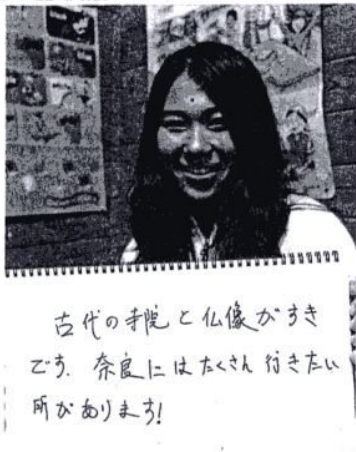 古代の寺院と仏像がすき
です. 奈良にはたくさん行きたい
所があります!